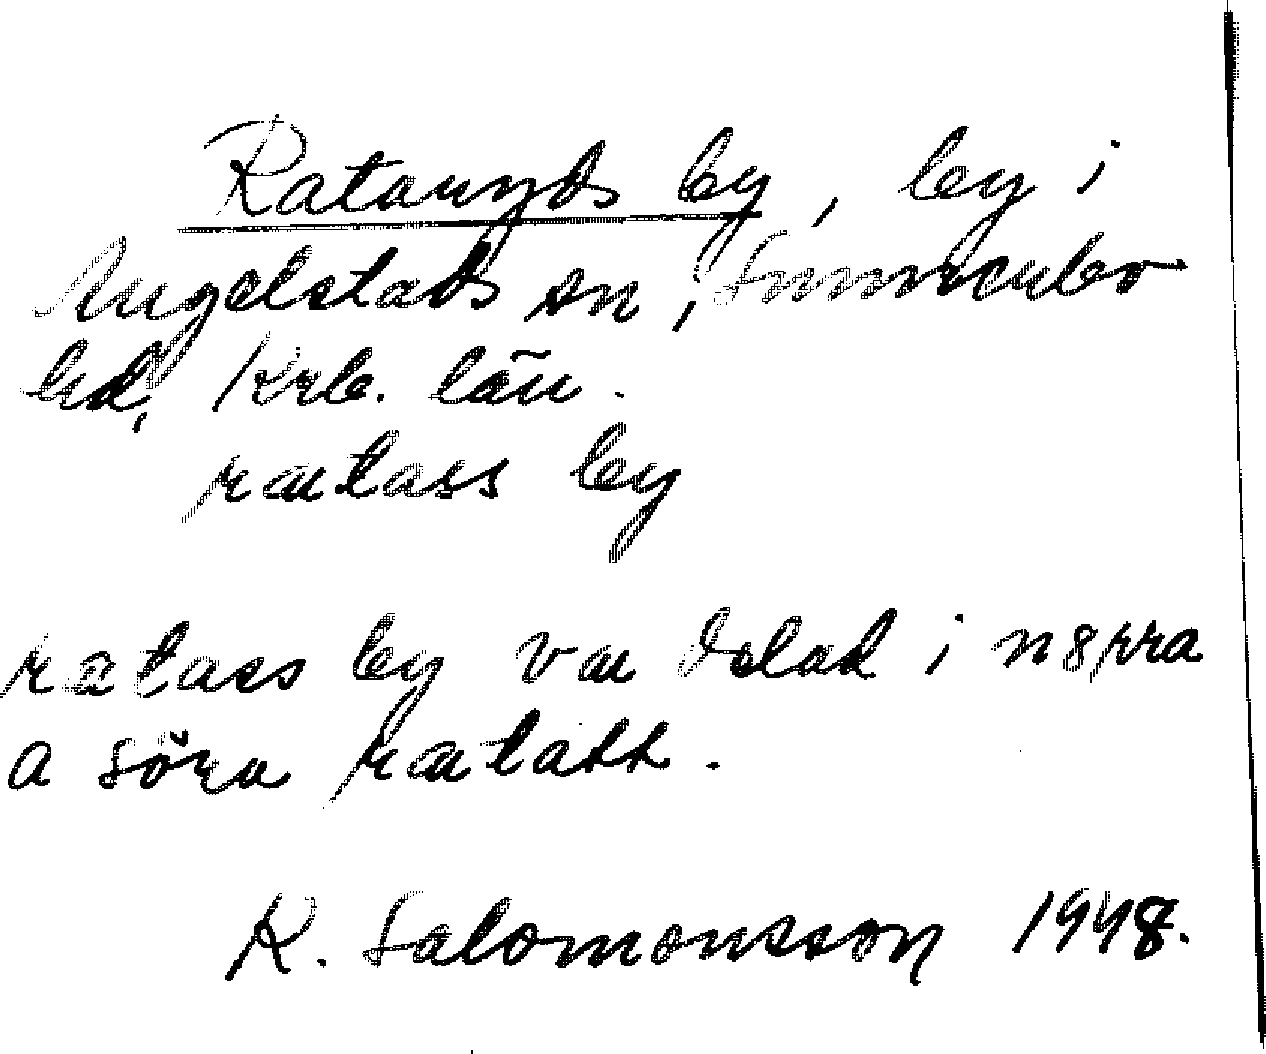 Rataryds by, by i
Angelstads sn, Sunnerbo
hd, Krb. län.
rætass by
rætass by var delad i n8rra
a söra rætätt.
K. Salomonsson 1948.